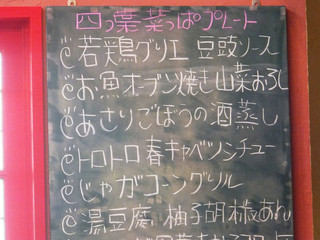 四つ葉菜っぱプレート
若鶏グリエ 豆豉ソース
お魚オーブン焼き山菜おろし
あさりごぼうの酒蒸し
トロトロ春キャベツシチュー
じゃがコーングリル
湯豆腐 柚子胡椒あん